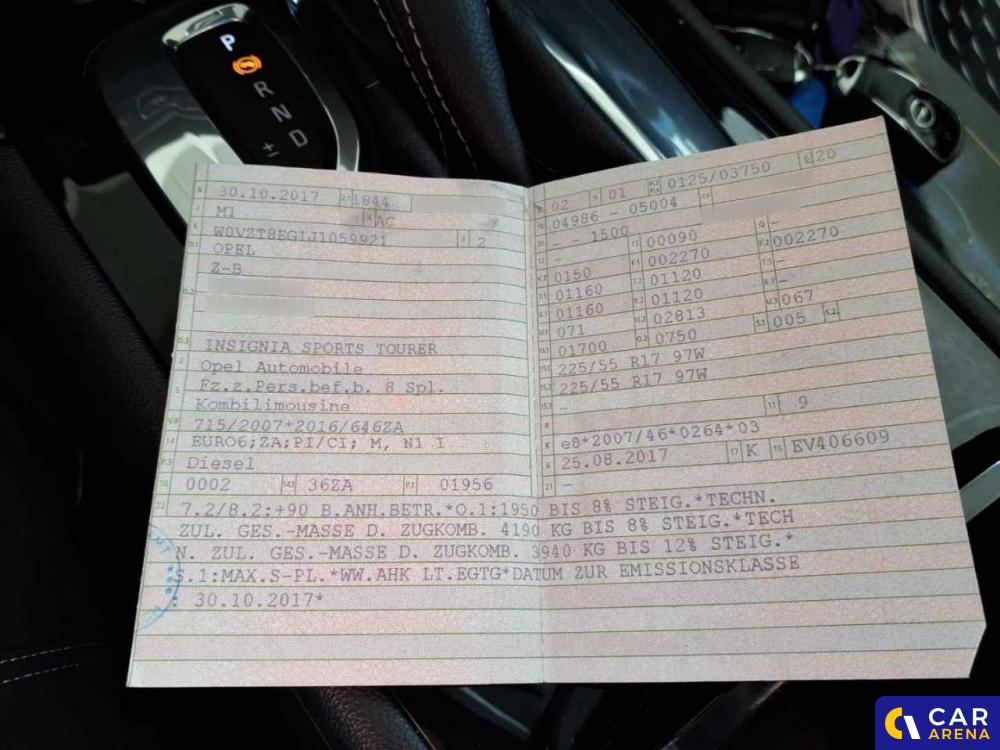 P
R
N
D
±
B 30.10.2017 2.1 1844
J M1 4 AC
E W0VZT8EGLJ1059921 3 2
D.1 OPEL
D.2 Z-B
-
-
D.3 INSIGNIA SPORTS TOURER
2 Opel Automobile
5 Fz.z.Pers.bef.b. 8 Spl.
Kombilimousine
V.9 715/2007*2016/646ZA
14 EURO6;ZA;PI/CI; M, N1 I
P.3 Diesel
10 0002 14.1 36ZA P.1 01956
22 7.2/8.2:+90 B.ANH.BETR.*O.1:1950 BIS 8% STEIG.*TECHN.
ZUL. GES.-MASSE D. ZUGKOMB. 4190 KG BIS 8% STEIG.*TECH
N. ZUL. GES.-MASSE D. ZUGKOMB. 3940 KG BIS 12% STEIG.*
S.1:MAX.S-PL.*WW.AHK LT.EGTG*DATUM ZUR EMISSIONSKLASSE
: 30.10.2017*
02 9 01 P.2 P.4 0125/03750 L 20
18 04986 - 05004 19
20 - - 1500
12 - 13 00090 Q -
V.7 0150 F.1 002270 F.2 002270
7.1 01160 7.2 01120 7.3 -
8.1 01160 8.2 01120 8.3 -
U.1 071 U.2 02813 U.3 067
O.1 01700 O.2 0750 S.1 005 S.2
15.1 225/55 R17 97W
15.2 225/55 R17 97W
15.3 -
R 11 9
K e8*2007/46*0264*03
6 25.08.2017 17 K 16 EV406609
21 -
CAR
ARENA